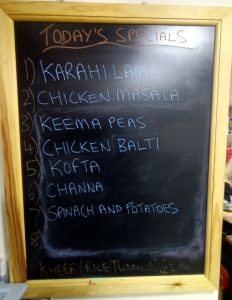 TODAY'S SPECIALS
1) KARAHI LAMB
2) CHICKEN MASALA
3) KEEMA PEAS
4) CHICKEN BALTI
5) KOFTA
6) CHANNA
7) SPINACH AND POTATOES
8)
KHEER (RICE PUDDING)